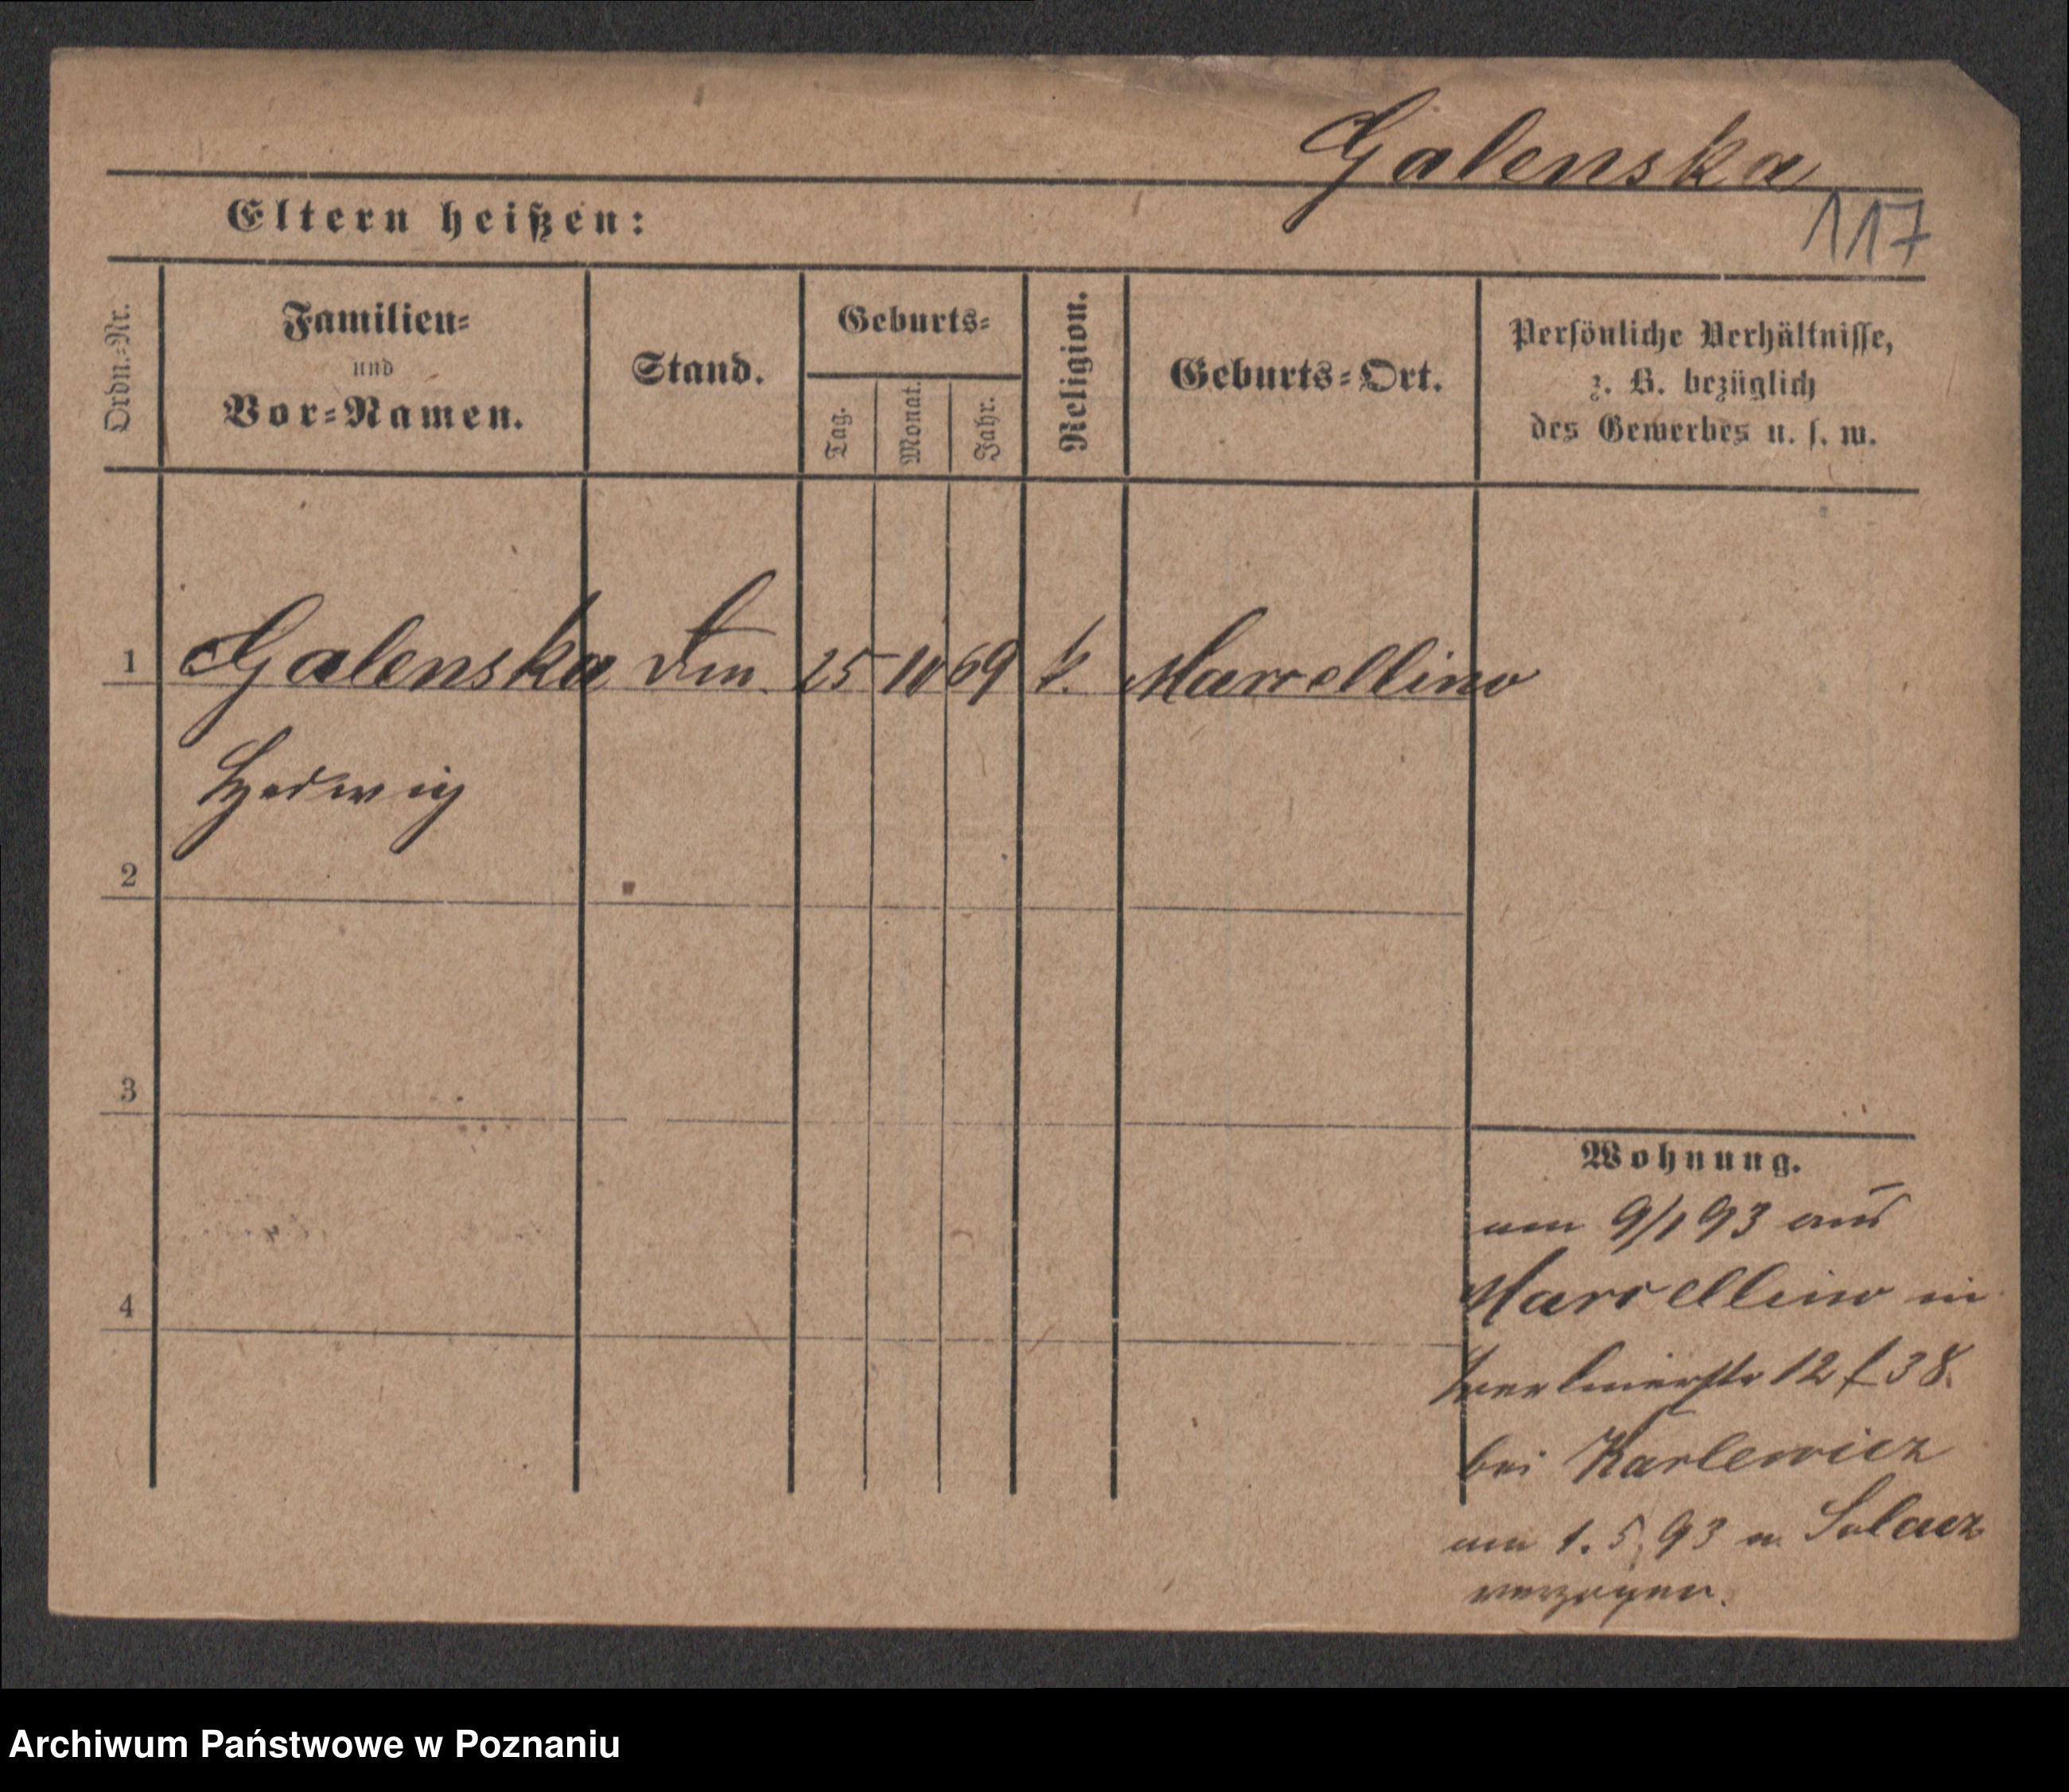 Galenska
117
Eltern heißen:
Ordn.=Nr.
Familien=
und
Vor=Namen.
Stand.
Geburts=
Tag.
Monat.
Jahr.
Religion.
Geburts=Ort.
Persönliche Verhältnisse,
z. B. bezüglich
des Gewerbes u. s. w.
1 Galenska 25 10 69 k. Marcellino
Hedwig
2
3
4
Wohnung.
am 9/1 93 aus
Marcellino in
12 38.
bei Karlewicz
am 1. 5. 93 n. Solacz
verzogen.
Archiwum Państwowe w Poznaniu